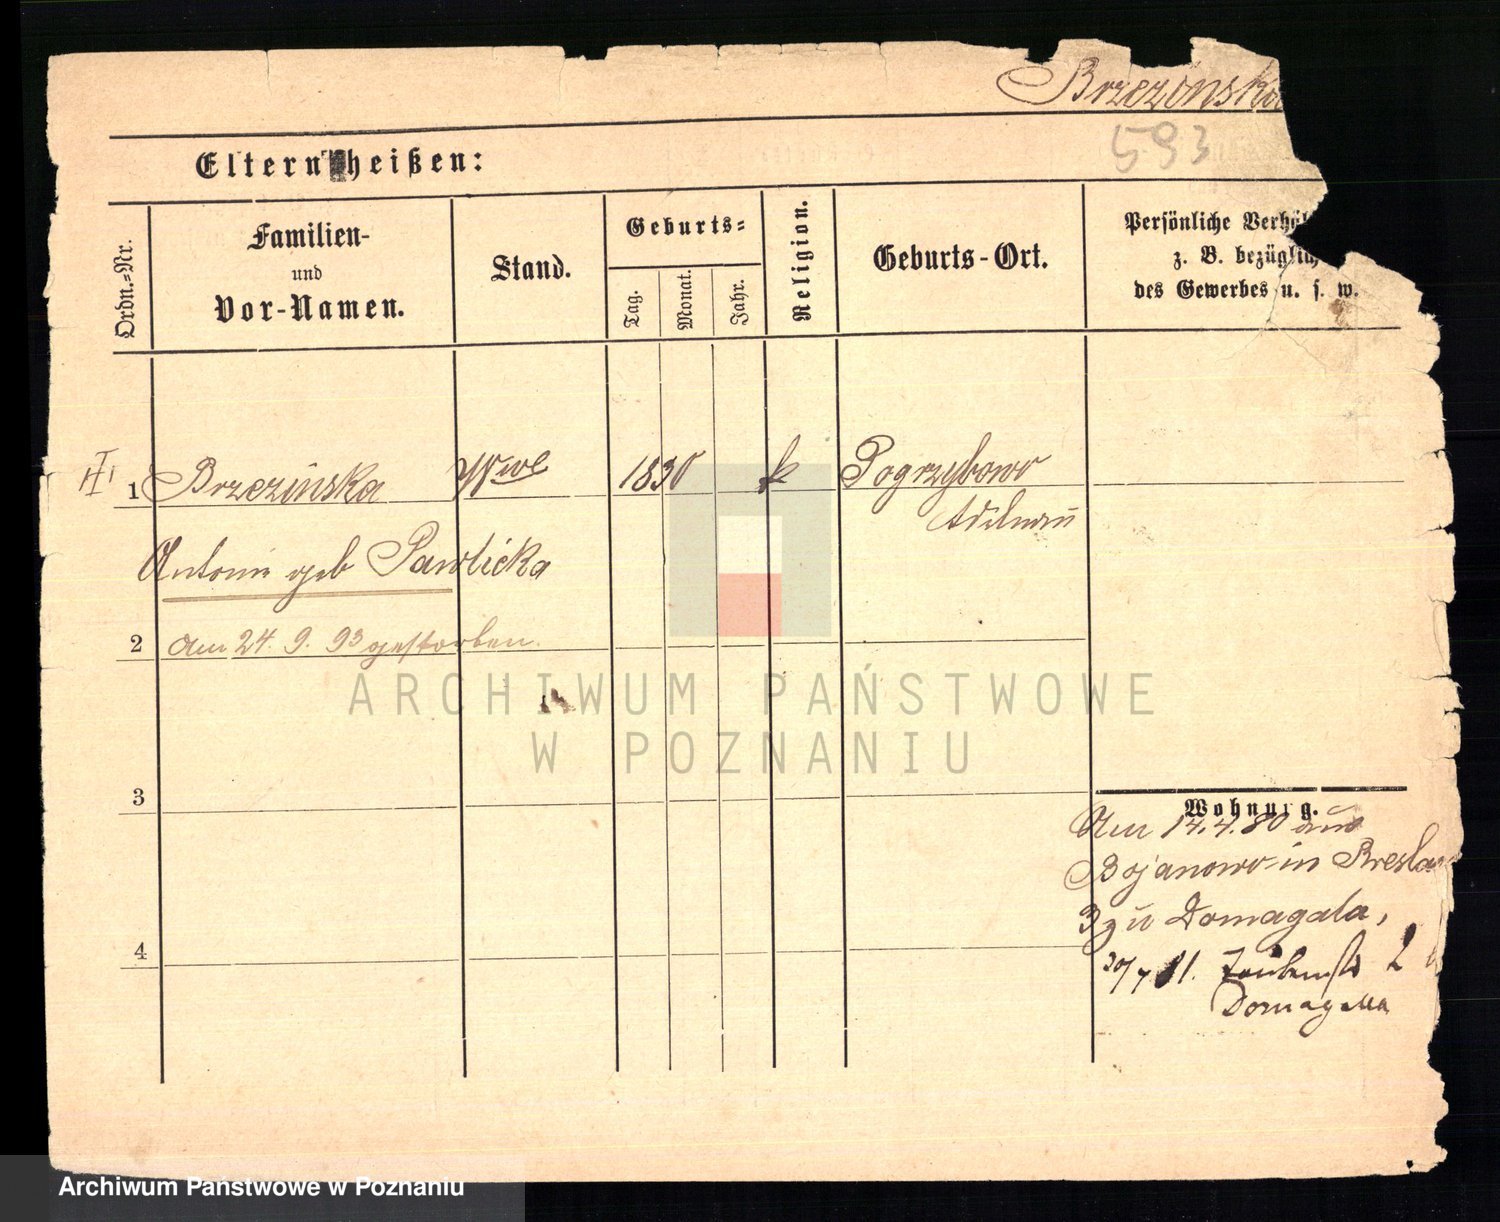 Brzezinska
593
Eltern heißen:
Ordn.-Nr.
Familien-
und
Vor-Namen.
Stand.
Geburts-
Tag.
Monat.
Jahr.
Religion.
Geburts-Ort.
Persönliche Verhäl
z. B. bezüglich
des Gewerbes u. s. w.
1 Brzezinska Wwe 1830 k Pogrzybowo
Adelnau
Antonie geb Pawlicka
2 Am 24. 9. 93 gestorben.
3
Wohnung.
Am 14.4.80 aus
Bojanowo in Bresla
3 zu Domagala,
4
30/7 81. 2
Domagalla
ARCHIWUM PAŃSTWOWE
W POZNANIU
Archiwum Państwowe w Poznaniu